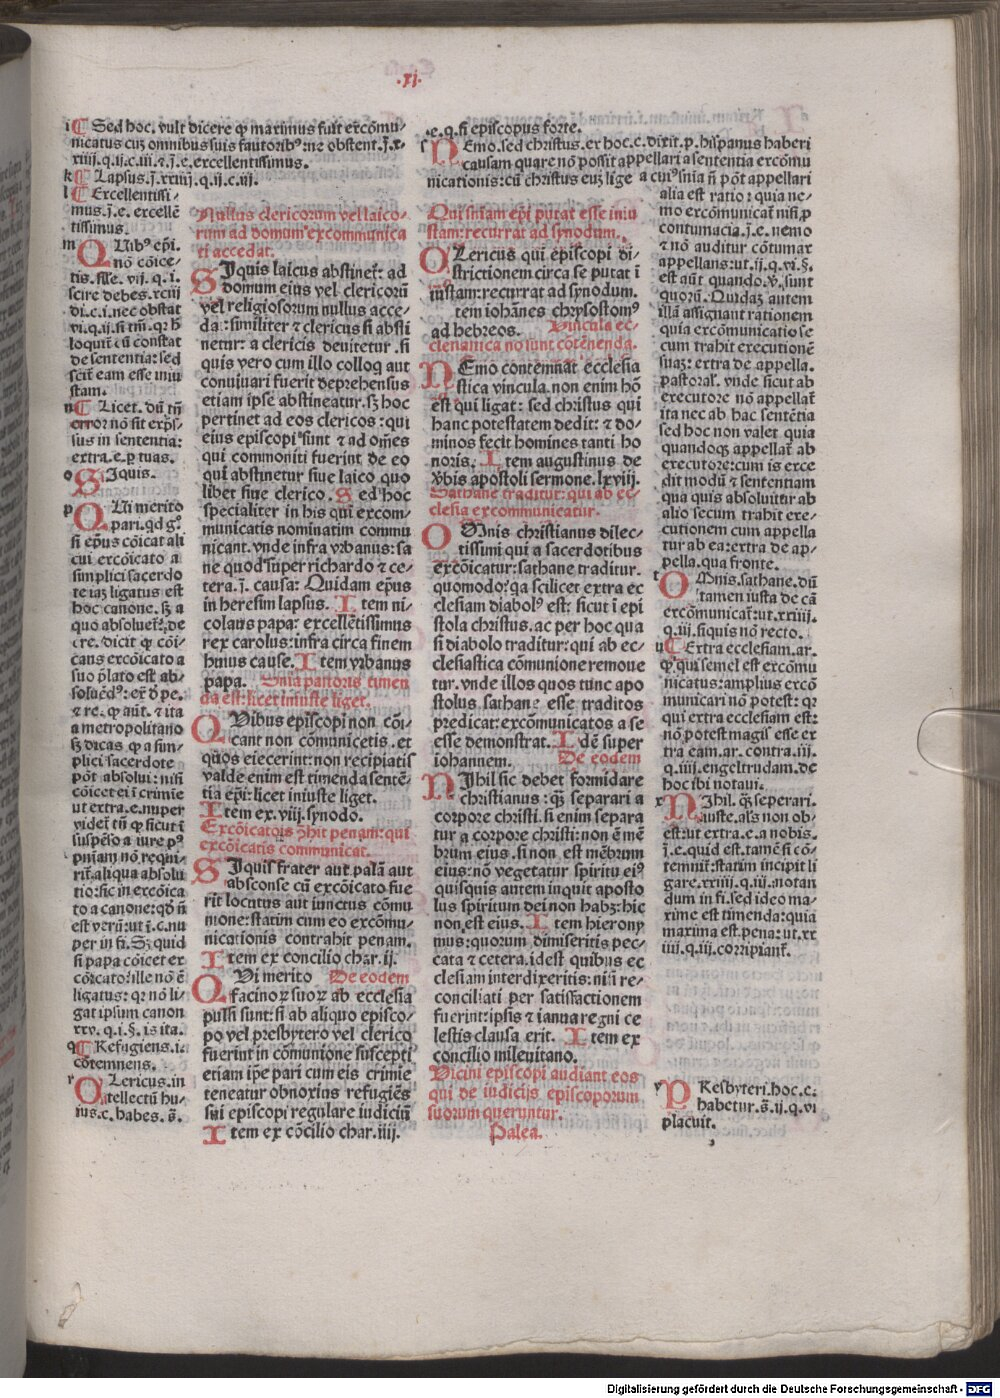 .xj.
i ¶ Sed hoc. vult dicere ꝙ maximus fuit excōmu-
nicatus cuȝ omnibus suis fautoribꝰ: ne obstent.j.x-
xiiij.q.ij.c.iii.⁊.j.e.excellentissimus.
k ¶ Lapsus.j.xxiiij.q.ij.c.iij.
l ¶ Excellentissi-
mus.j.e. excellē
tissimus.
m QUibꝰ ep̄i.
nō cōice-
tis. sill'e. vij. q. i.
scire debes. xciij
di.c.i.nec obstat
vi.q.ij.si tm̄.qr h̄
loquit̄ cū constat
de sententia: sed
scit̄ eam esse iniu
stam.
n ¶ Licet. dū tn̄
error nō sit exp̄s-
sus in sententia:
extra.e.p tuas.
o SIquis.
p QUi merito
pari. qd gͦ.
si ep̄us cōicat ali
cui excōicato a
simplici sacerdo
te iaȝ ligatus est
hoc canone. sȝ a
quo absoluet̄: de
cre. dicit ꝙ cōi-
cans excōicato a
suo p̄lato est ab-
soluēdꝰ: ex̄ d̄ pe.
⁊ re. ꝙ aūt. ⁊ ita
a metropolitano
sȝ dicas ꝙ a sim-
plici sacerdote
pōt absolui: nisi
cōicet ei ī crimīe
ut extra.e. nuper
videt̄ tn̄ ꝙ sicut ī
suspēso a iure pꝰ
pniam nō requi-
rit̄ aliqua absolu
tio: sic in excōica
to a canone: qd n̄
est verū: ut ī.c.nu
per in fi. Sȝ quid
si papa cōicet ex
cōicato: ille nō ē
ligatus: qr nō li-
gat ipsum canon
xxv. q.i.§. is ita.
q ¶ Refugiens.i.
cōtemnens.
r CLericus. in
tellectū hu-
ius.c. habes. s̄.
Nullus clericorum vel laico-
rum ad domum excommunica
ti accedat.
SIquis laicus abstinet̄: ad
domum eius vel clericorū
vel religiosorum nullus acce-
dat: similiter ⁊ clericus si absti
netur: a clericis deuitetur. si
quis vero cum illo colloq aut
conuiuari fuerit deprehensus
etiam ipse abstineatur. sȝ hoc
pertinet ad eos clericos: qui
eius episcopi sunt ⁊ ad om̄es
qui commoniti fuerint de eo
qui abstinetur siue laico quo
libet siue clerico. Sed hoc
specialiter in his qui excom-
municatis nominatim commu
nicant. vnde infra vrbanus: sa
ne quod super richardo ⁊ ce-
tera.j. causa: Quidam ep̄us
in heresim lapsus. Item ni-
colaus papa: excellētissimus
rex carolus: infra circa finem
huius cause. Item vrbanus
papa. Snīa pastoris timen
da est: licet iniuste liget.
QUibus episcopi non cōi-
cant non cōmunicetis. et
quos eiecerint: non recipiatis
valde enim est timenda sentē-
tia ep̄i: licet iniuste liget.
Item ex. viij. synodo.
Excōicatoꝝ p̄hit penam: qui
excōicatis communicat.
SIquis frater aut palā aut
absconse cū excōicato fue
rit locutus aut iunctus cōmu
nione: statim cum eo excōmu-
nicationis contrahit penam.
Item ex concilio char. ij.
QUi merito De eodem
facinoꝝ suoꝝ ab ecclesia
pulsi sunt: si ab aliquo episco-
po vel presbytero vel clerico
fuerint in cōmunione suscepti
etiam ip̄e pari cum eis crimīe
teneatur obnoxius refugiēs
sui episcopi regulare iudiciū
Item ex cōcilio char. iiij.
.e.q. si episcopus forte.
s NEmo. sed christus. ex hoc.c. dixit.p. hispanus haberi
causam quare nō possit appellari a sententia excōmu
nicationis: cū christus euȝ lige
Qui sniam ep̄i putat esse iniu
stam: recurrat ad synodum.
CLericus qui episcopi di-
strictionem circa se putat ī
iustam: recurrat ad synodum.
Item iohānes chrysostomꝰ
ad hebreos. Vincula ec-
clesiastica nō sunt cōtēnenda.
NEmo contemnat ecclesia
stica vincula. non enim hō
est qui ligat: sed christus qui
hanc potestatem dedit: ⁊ do-
minos fecit homines tanti ho
noris. Item augustinus de
v̄bis apostoli sermone. lxviij.
Sathane traditur: qui ab ec-
clesia excommunicatur.
OMnis christianus dilec-
tissimi qui a sacerdotibus
excōicatur: sathane traditur.
quomodo: qa scilicet extra ec
clesiam diabolꝰ est: sicut ī epi
stola christus. ac per hoc qua
si diabolo traditur: qui ab ec-
clesiastica cōmunione remoue
tur. vnde illos quos tunc apo
stolus sathane esse traditos
predicat: excōmunicatos a se
esse demonstrat. Idē super
iohannem. De eodem
NIhil sic debet formidare
christianus: qȝ separari a
corpore christi. si enim separa
tur a corpore christi: non ē mē
brum eius. si non est mēbrum
eius: nō vegetatur spiritu eiꝰ
quisquis autem inquit aposto
lus spiritum dei non habȝ: hic
non est eius. Item hierony
mus: quorum dimiseritis pec-
cata ⁊ cetera. idest quibus ec
clesiam interdixeritis: nisi re-
conciliati per satisfactionem
fuerint: ipsis ⁊ ianua regni ce
lestis clausa erit. Item ex
concilio mileuitano.
Vicini episcopi audiant eos
qui de iudicijs episcoporum
suorum queruntur.
Palea.
a cuiꝰ snia n̄ pōt appellari
alia est ratio: quia ne-
mo excōmunicat̄ nisi ꝓ
contumacia. j.e. nemo
⁊ nō auditur cōtumax
appellans: ut.ij.q.vi.§.
est aūt quando. v̄. sunt
quorū. Quidaȝ autem
illā assignant rationem
quia excōmunicatio se
cum trahit executionē
suaȝ: extra de appella.
pastoral'. vnde sicut ab
executore nō appellat̄
ita nec ab hac sentētia
sed hoc non valet quia
quandoqȝ appellat̄ ab
executore: cum is exce
dit modū ⁊ sententiam
qua quis absoluitur ab
alio secum trahit exe-
cutionem cum appella
tur ab ea: extra de ap-
pella. qua fronte.
t OMnis. sathane. dū
tamen iusta de cā
excōmunicat̄: ut. xxiiij.
q.iij. si quis nō recto.
u ¶ Extra ecclesiam. ar.
ꝙ qui semel est excōmu
nicatus: amplius excō
municari nō potest: qr
qui extra ecclesiam est:
nō potest magis esse ex
tra eam. ar. contra. iij.
q.iiij. engeltrudam. de
hoc ibi notaui.
x NIhil. qȝ seperari.
iuste. al's non ob-
est: ut extra.e.a nobis.
j.e. quid est. tamē si cō-
temnit̄: statim incipit li
gare. xxiiij.q.iij. notan
dum in fi. sed ideo ma-
xime est timenda: quia
maxima est pena: ut xx
iiij.q.iij. corripiant̄.
y PResbyteri. hoc.c.
habetur. s̄. ij. q. vi
placuit.
Digitalisierung gefördert durch die Deutsche Forschungsgemeinschaft - DFG